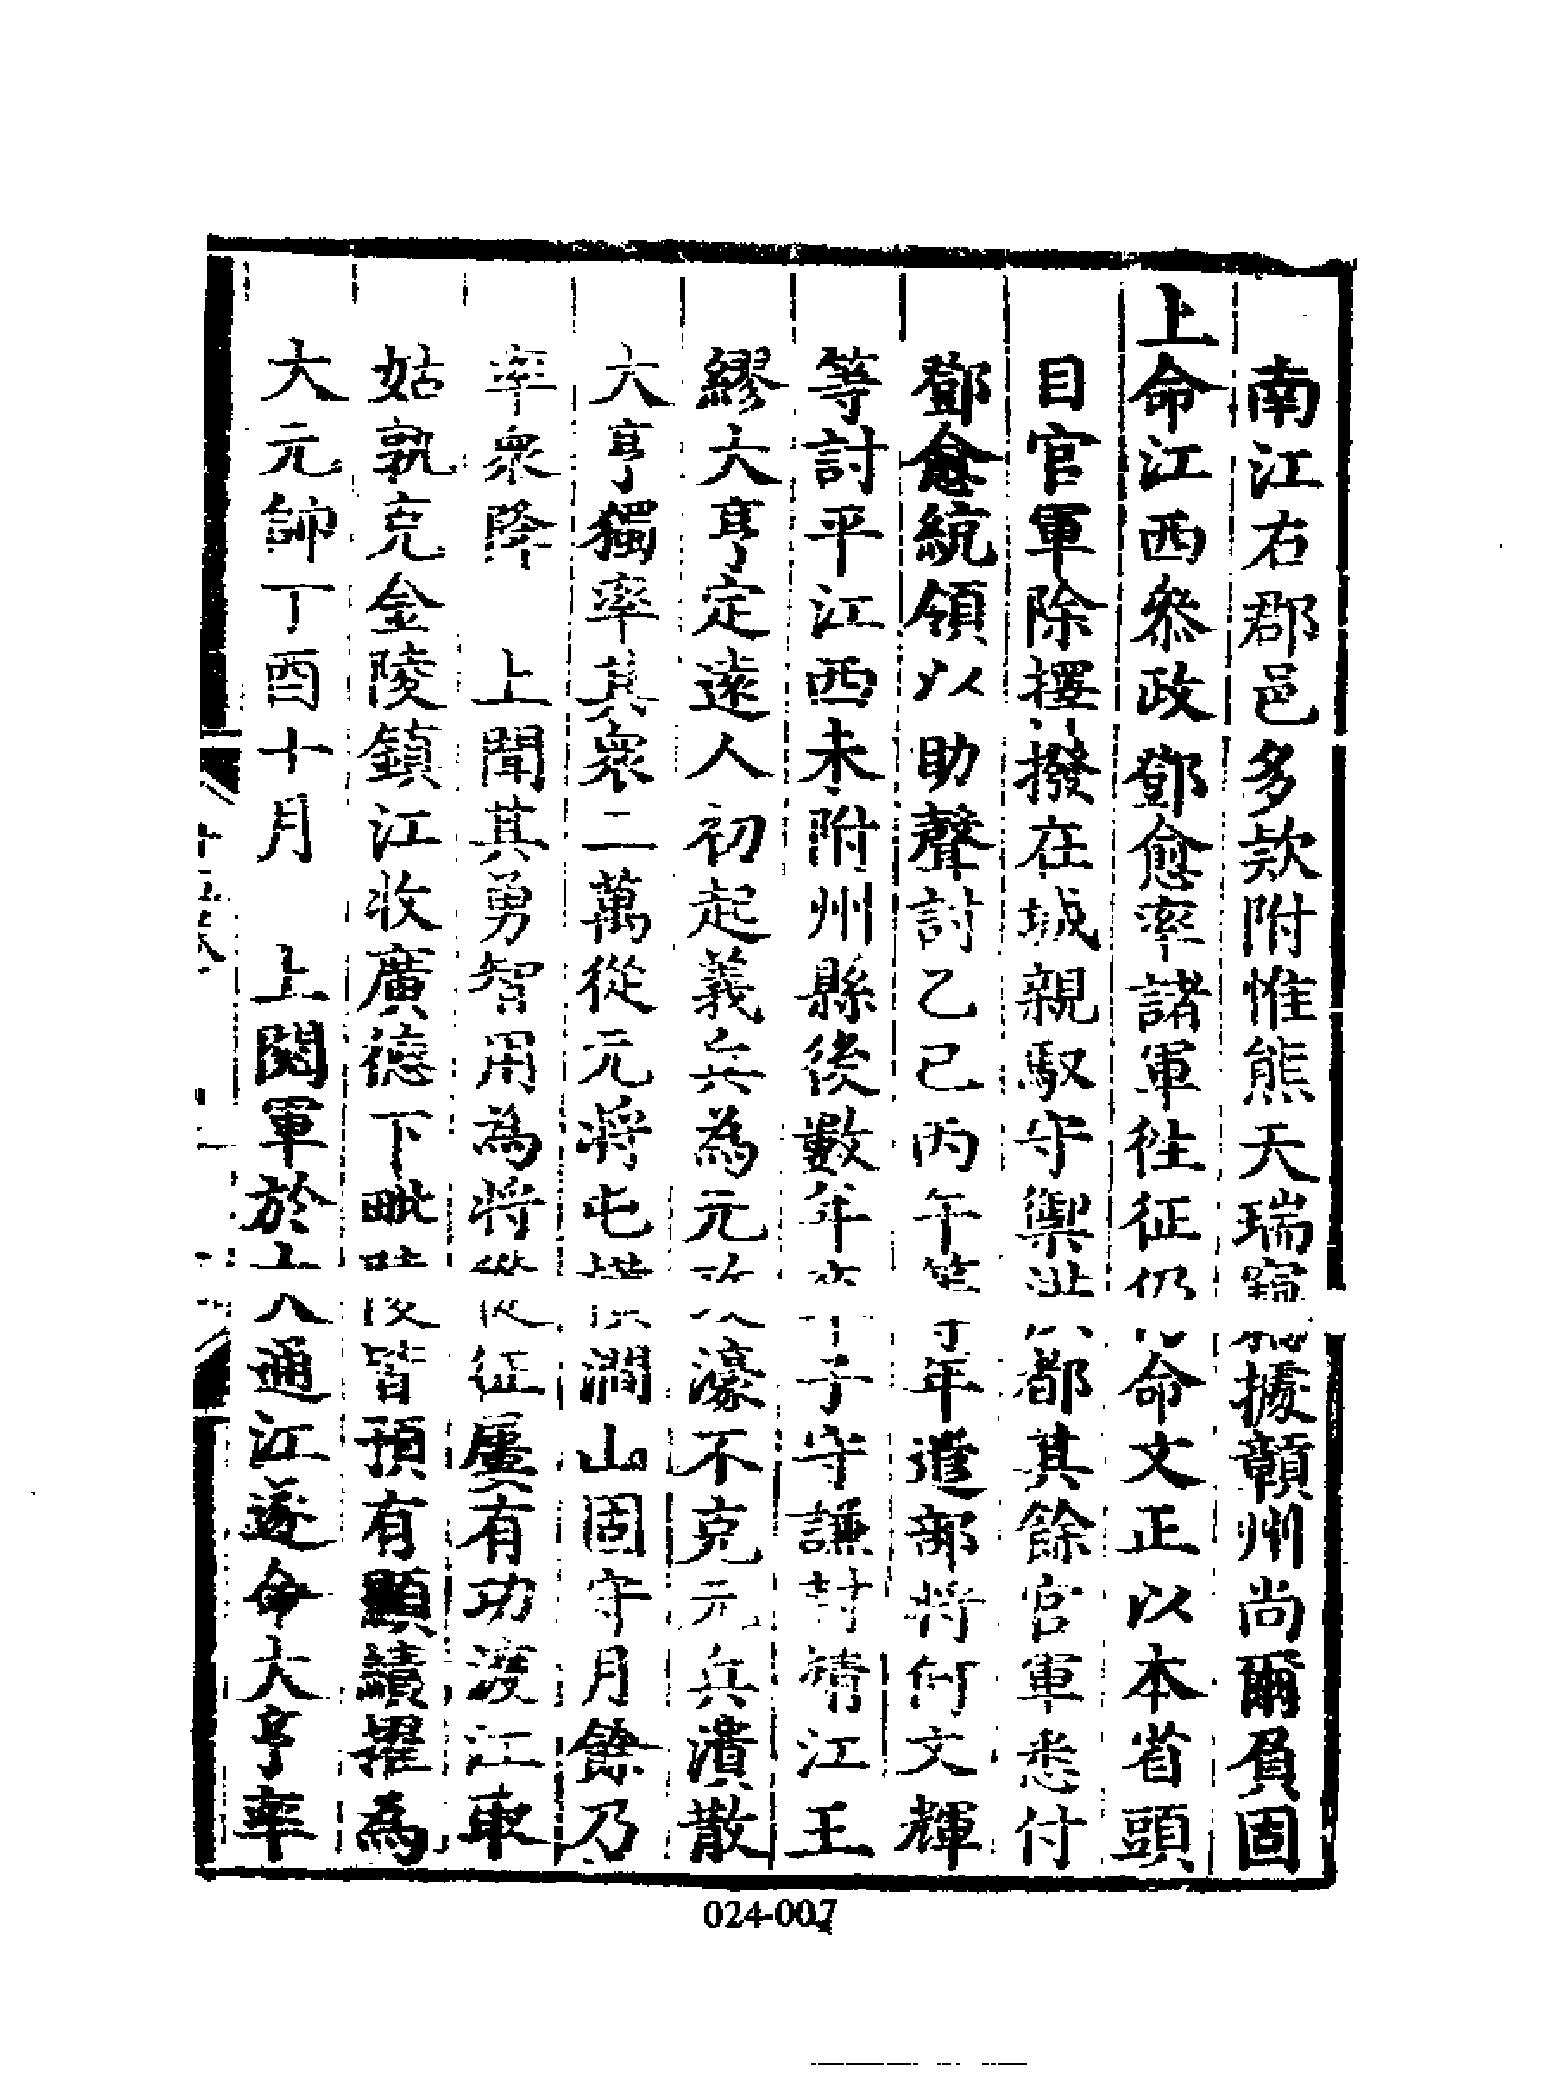 南江右郡邑多欵附惟熊天瑞竊據贛州尚爾負固
上命江西叅政鄧愈率諸軍往征仍命文正以本省頭
目官軍除擇撥在城親馭守禦洪都其餘官軍悉付
鄧愈統領以助聲討乙巳丙午等年遣部將何文輝
等討平江西未附州縣後數年卒子守謙封靖江王
繆大亨定遠人初起義兵為元攻濠不克元兵潰散
大亨獨率其衆二萬從元將屯横澗山固守月餘乃
率衆降　上聞其勇智用為將從征屢有功渡江取
姑孰克金陵鎮江收廣德下毗陵皆預有顯績擢為
大元帥丁酉十月　上閲軍於大通江遂命大亨率
024-007